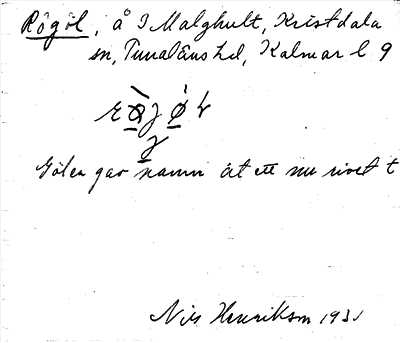 Rögöl, å I Malghult, Kristdala
sn, Tunaläns hd, Kalmar l 9
Gölen gav namn åt ett nu rivet t
Nils Henrikson 1931